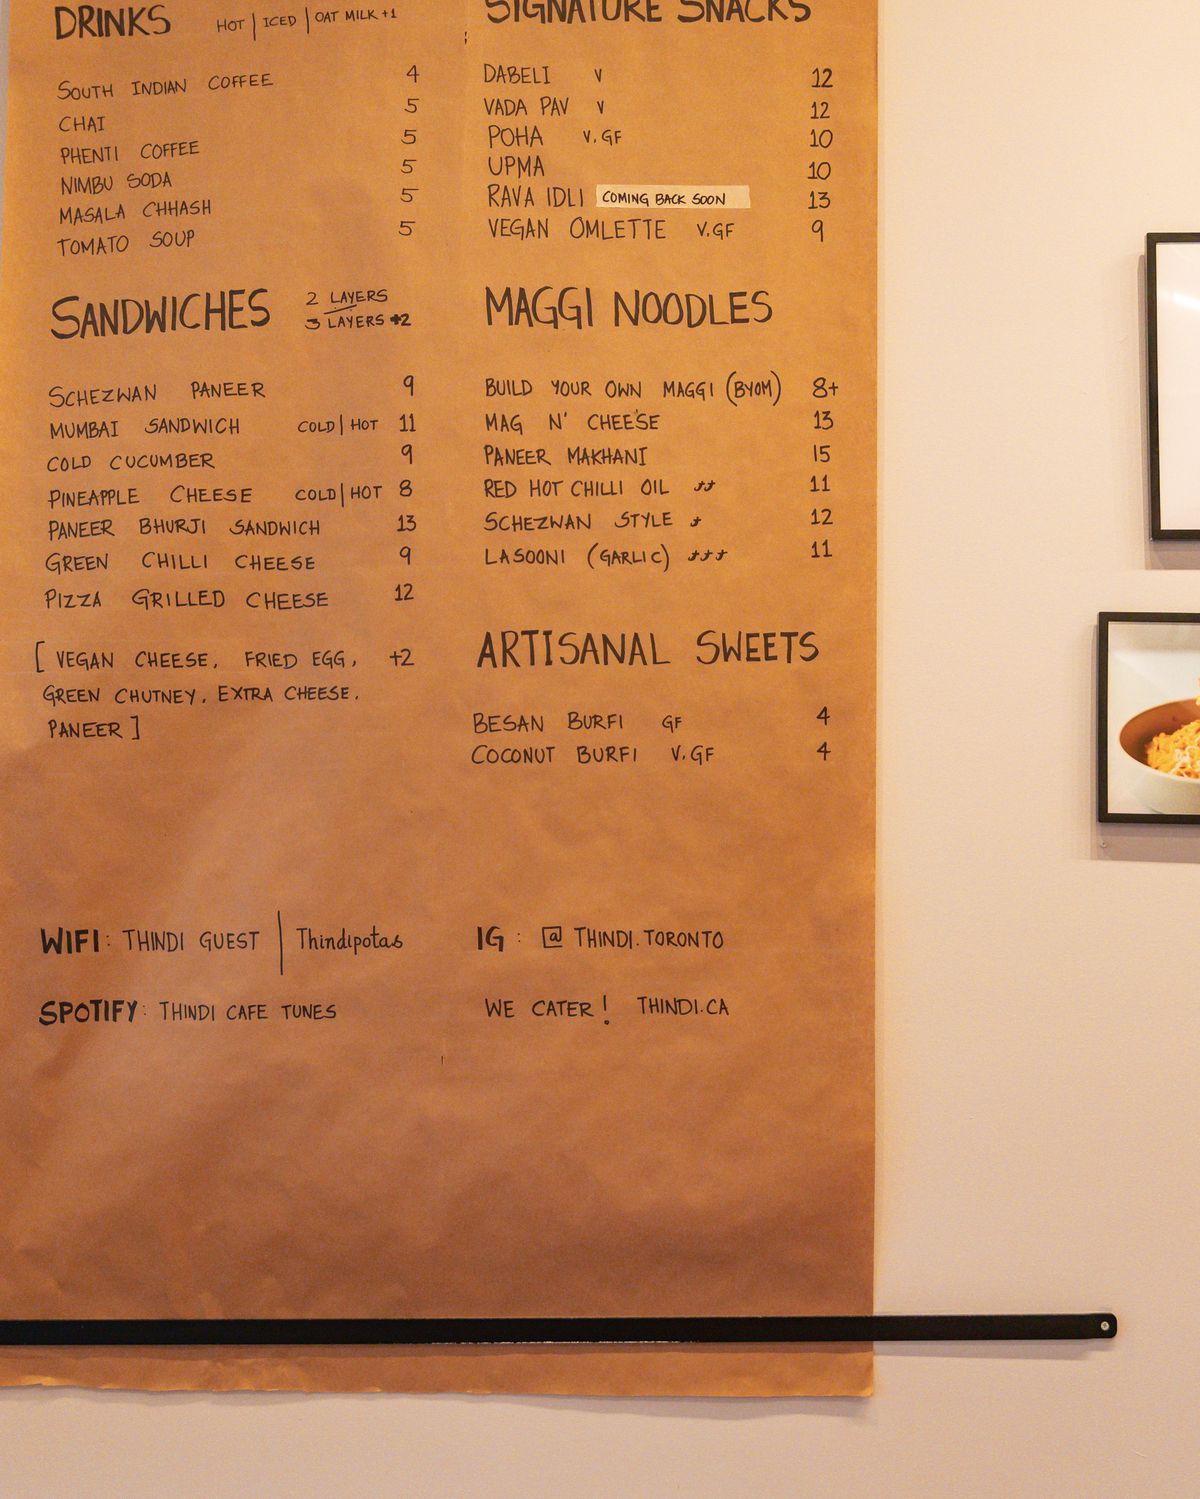 DRINKS HOT | ICED | OAT MILK +1
SOUTH INDIAN COFFEE 4
CHAI 5
PHENTI COFFEE 5
NIMBU SODA 5
MASALA CHHASH 5
TOMATO SOUP 5
SANDWICHES 2 LAYERS
3 LAYERS +2
SCHEZWAN PANEER 9
MUMBAI SANDWICH COLD | HOT 11
COLD CUCUMBER 9
PINEAPPLE CHEESE COLD | HOT 8
PANEER BHURJI SANDWICH 13
GREEN CHILLI CHEESE 9
PIZZA GRILLED CHEESE 12
[ VEGAN CHEESE, FRIED EGG, +2
GREEN CHUTNEY, EXTRA CHEESE,
PANEER ]
SIGNATURE SNACKS
DABELI V 12
VADA PAV V 12
POHA V.GF 10
UPMA 10
RAVA IDLI COMING BACK SOON 13
VEGAN OMLETTE V.GF 9
MAGGI NOODLES
BUILD YOUR OWN MAGGI (BYOM) 8+
MAG N' CHEESE 13
PANEER MAKHANI 15
RED HOT CHILLI OIL 11
SCHEZWAN STYLE 12
LASOONI (GARLIC) 11
ARTISANAL SWEETS
BESAN BURFI GF 4
COCONUT BURFI V.GF 4
WIFI: THINDI GUEST | Thindipotas
SPOTIFY: THINDI CAFE TUNES
IG : @ THINDI.TORONTO
WE CATER! THINDI.CA